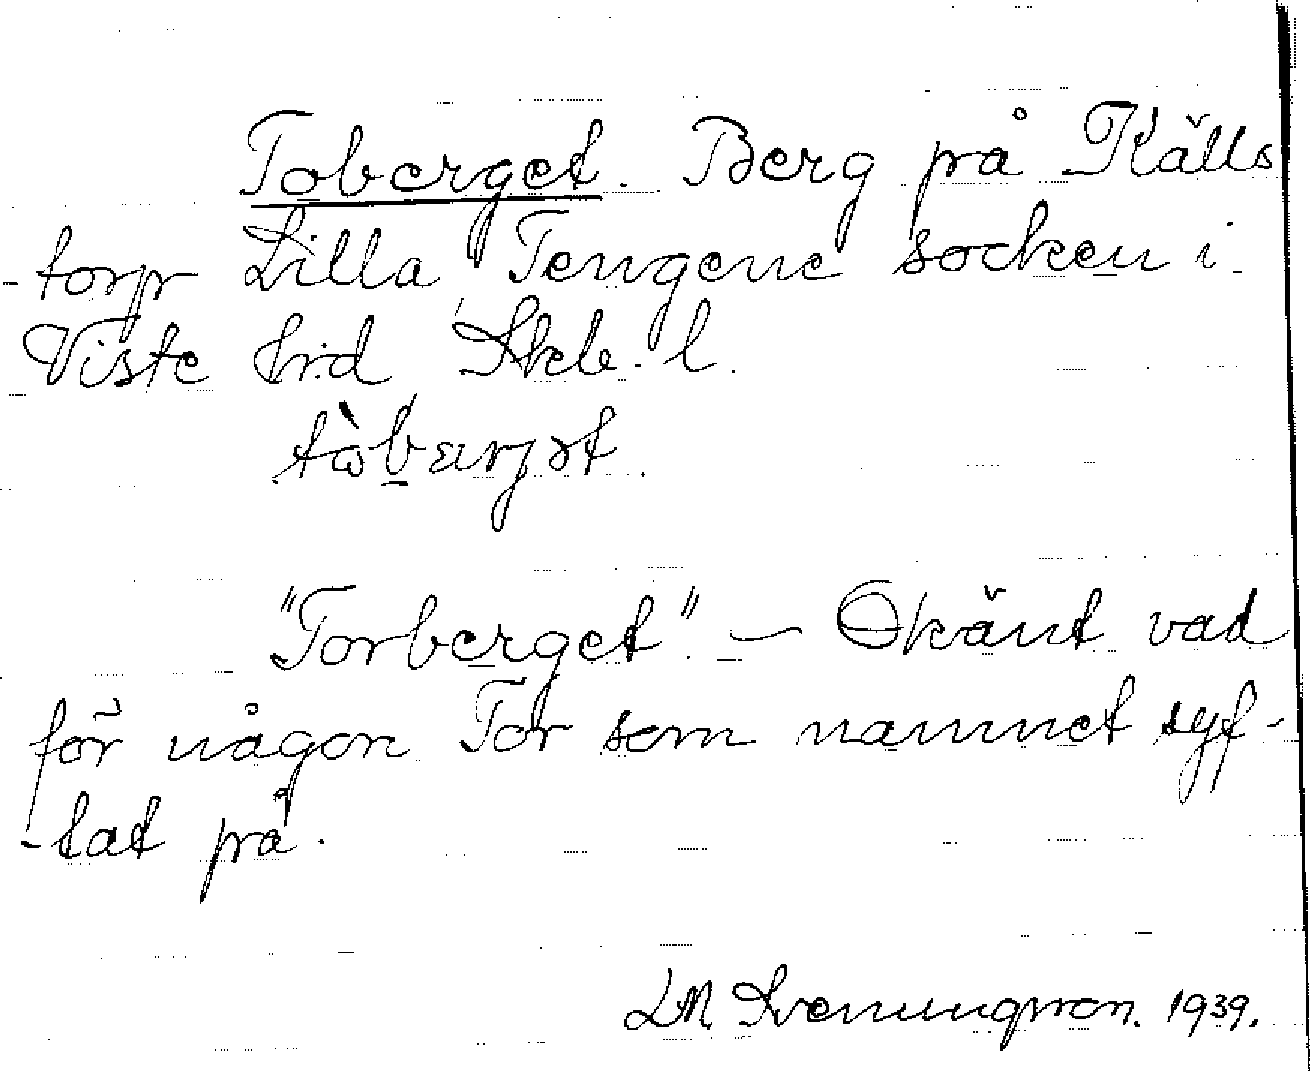 Toberget. Berg på Källs
-torp Lilla, Tengene socken i
Viste hrd, Skb. l.
"Torberget" — Okänt vad
för någon Tor som namnet syf-
-tat på.
LM Svenungsson. 1939.